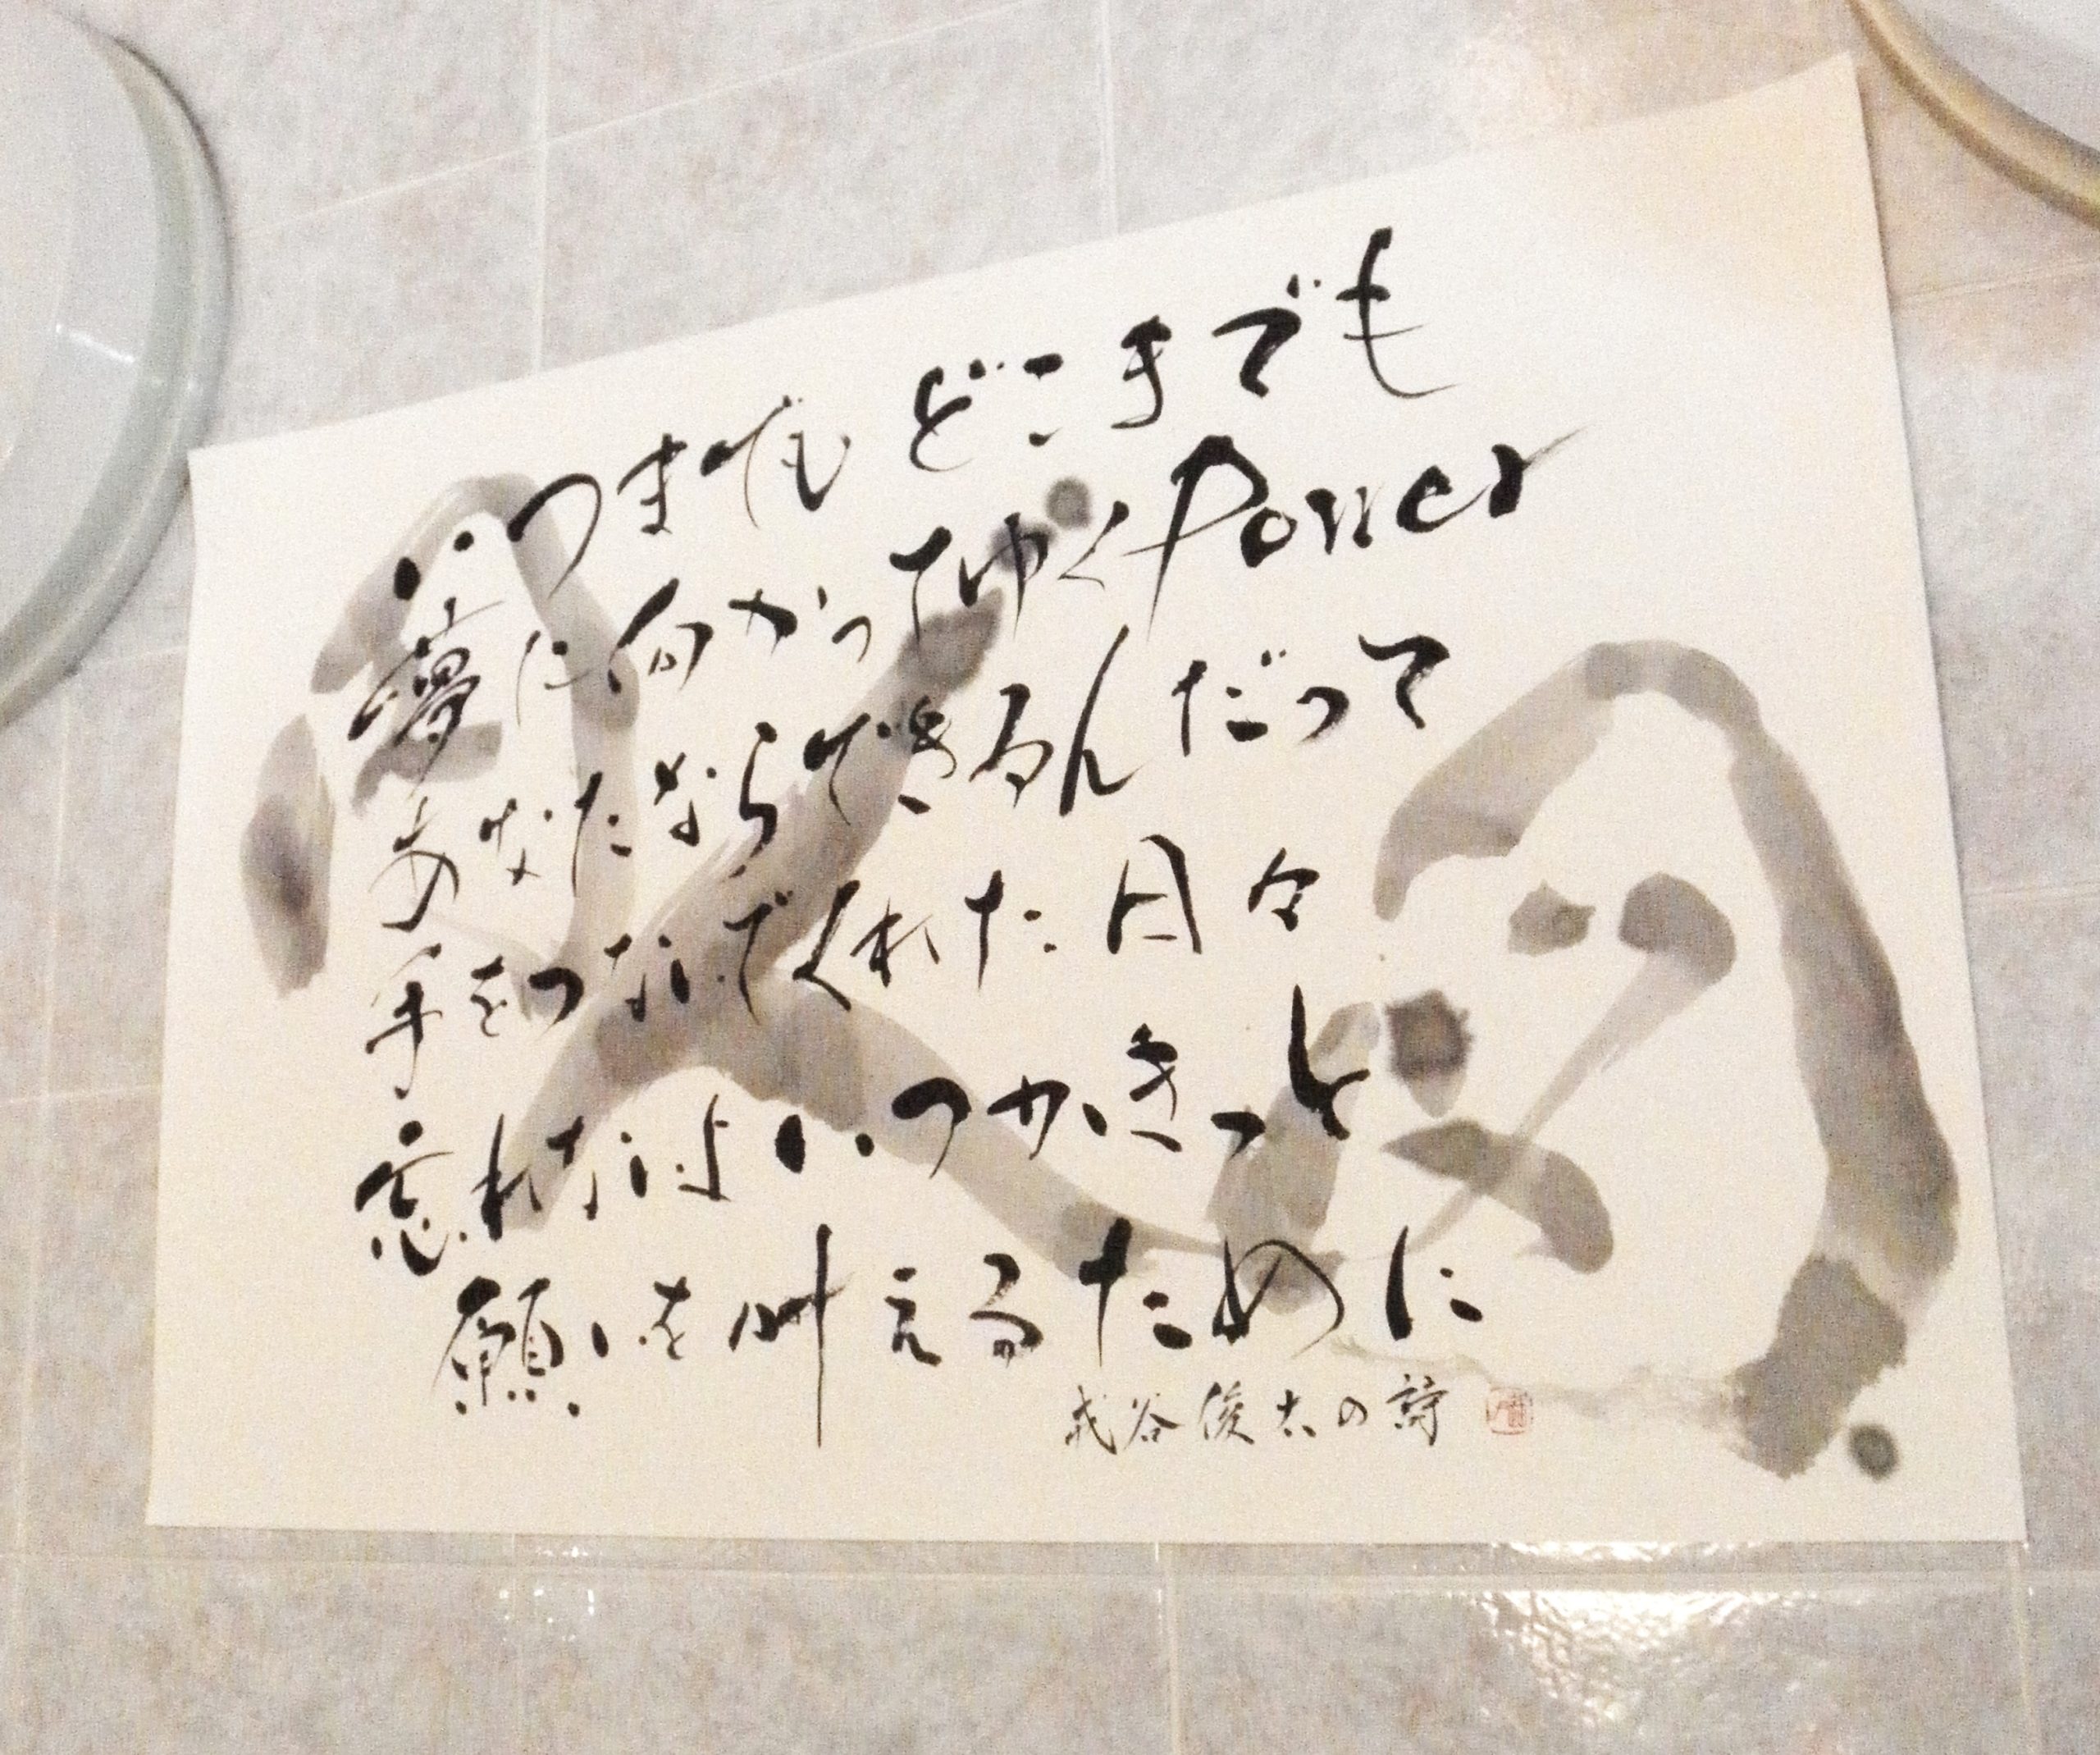 いつまでも どこまでも
夢に向かってゆくPower
あなたならできるんだって
手をつないでくれた日々
忘れないよ いつかきっと
願いを叶えるために
戎谷俊太の詩